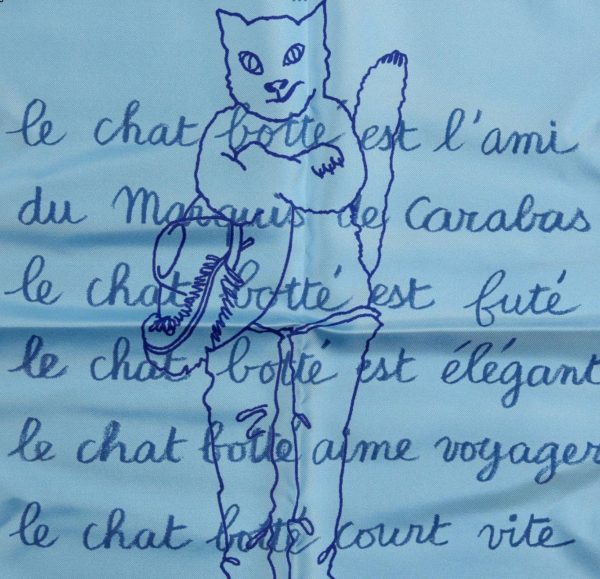 le chat botté est l'ami
du Marquis de Carabas
le chat botté est futé
le chat botté est élégant
le chat botté aime voyager
le chat botté court vite